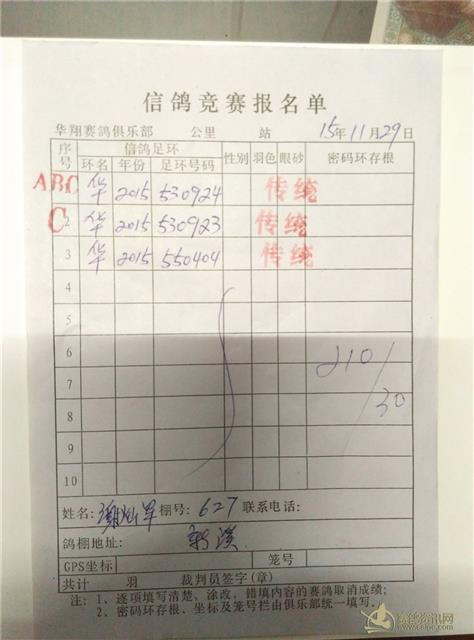 信鸽竞赛报名单
华翔赛鸽俱乐部 公里 站 15年11月29日
序号 信鸽足环 性别 羽色 眼砂 密码环存根
环名 年份 足环号码
ABC 华 2015 530924 传统
C 2 华 2015 530923 传统
3 华 2015 550404 传统
4
5
6 210/30
7
8
9
10
姓名: 棚号: 627 联系电话:
鸽棚地址: 新溪
GPS坐标 笼号
共计 羽 裁判员签字(章)
注: 1、逐项填写清楚,涂改,错填内容的赛鸽取消成绩;
2、密码环存根、坐标及笼号栏由俱乐部统一填写。